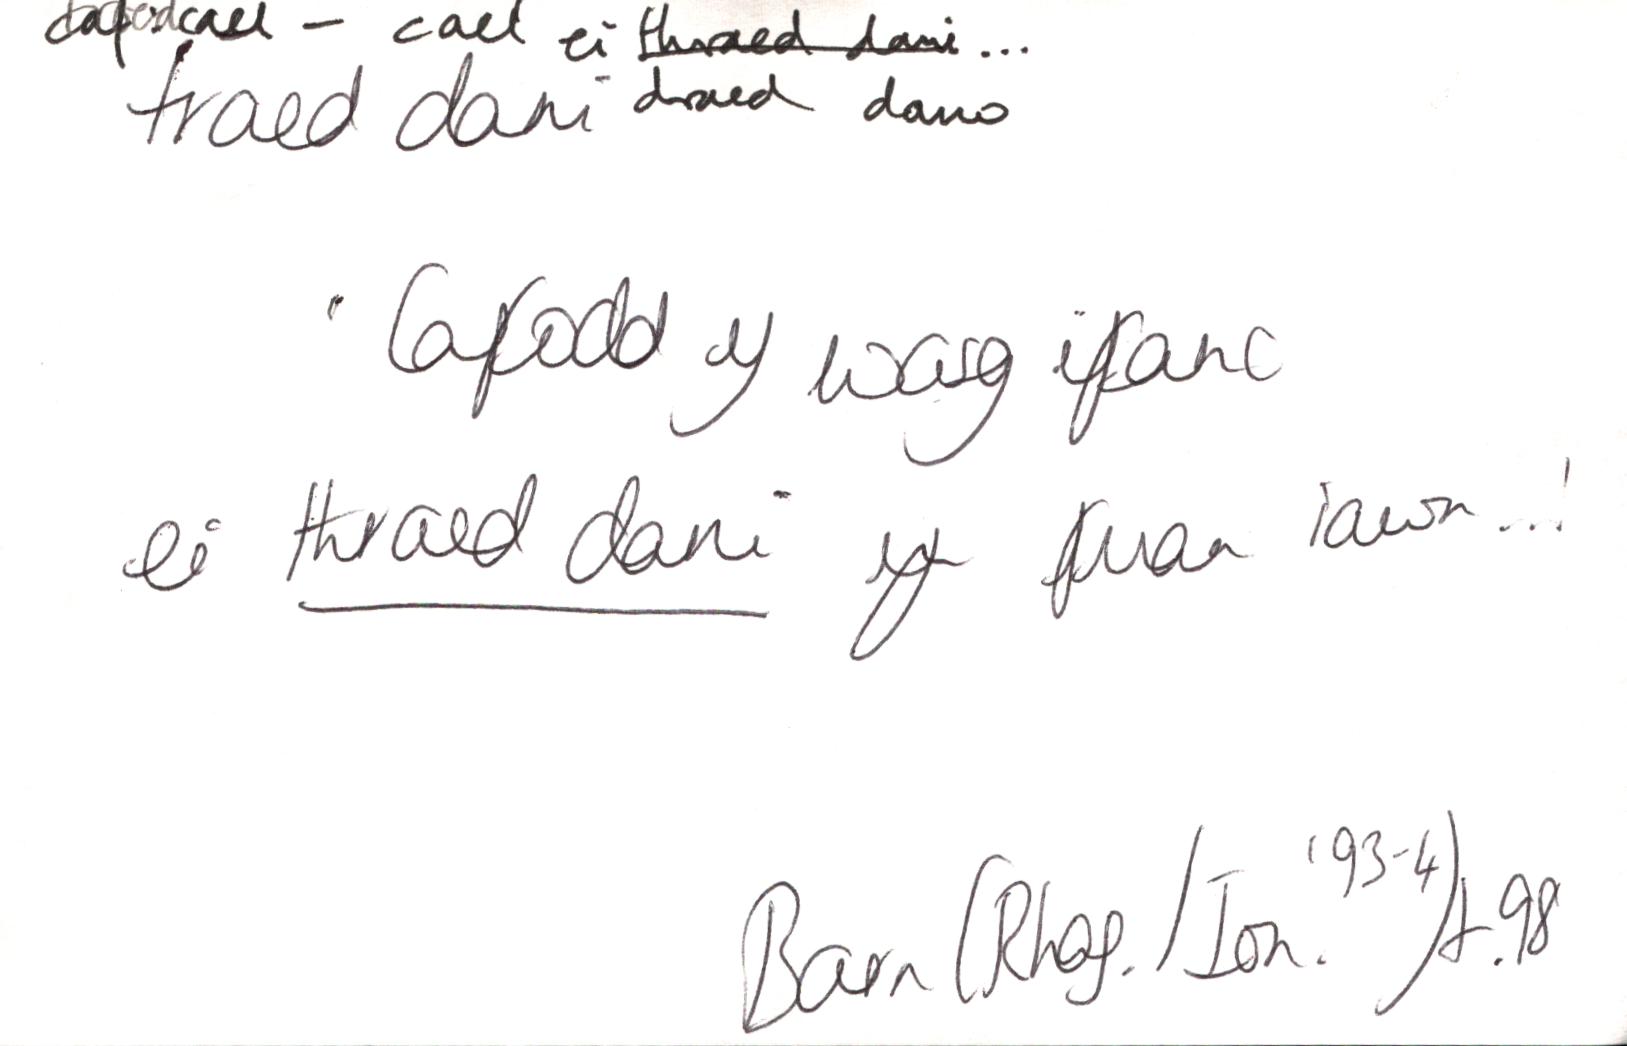 cael – cael ei thraed dani...
traed dani draed dano
'Cafodd y wasg ifanc
ei thraed dani yn fuan iawn...!
Barn (Rhag./Ion. '93-4) t.98